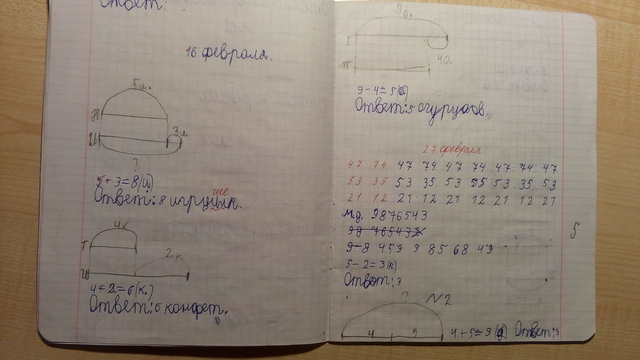 Ответ:
16 февраля.
5и.
П
Ш
3и
?
5+3=8(и)
Ответ: 8 игрушек.
4к
Т
2к
Ш
4+2=6(к.)
Ответ: 6 конфет.
9о.
Г
4о.
П
9-4=5(о)
Ответ: 5 огурцов.
27 февраля
47 74 47 74 47 74 47 74 47
53 35 53 35 53 35 53 35 53
21 12 21 12 21 12 21 12 21
м.д. 9876543
9-8 459 9 85 68 49
5-2=3(к)
Ответ: ?
? №2
4 5 4+5=9 Ответ: 9
5